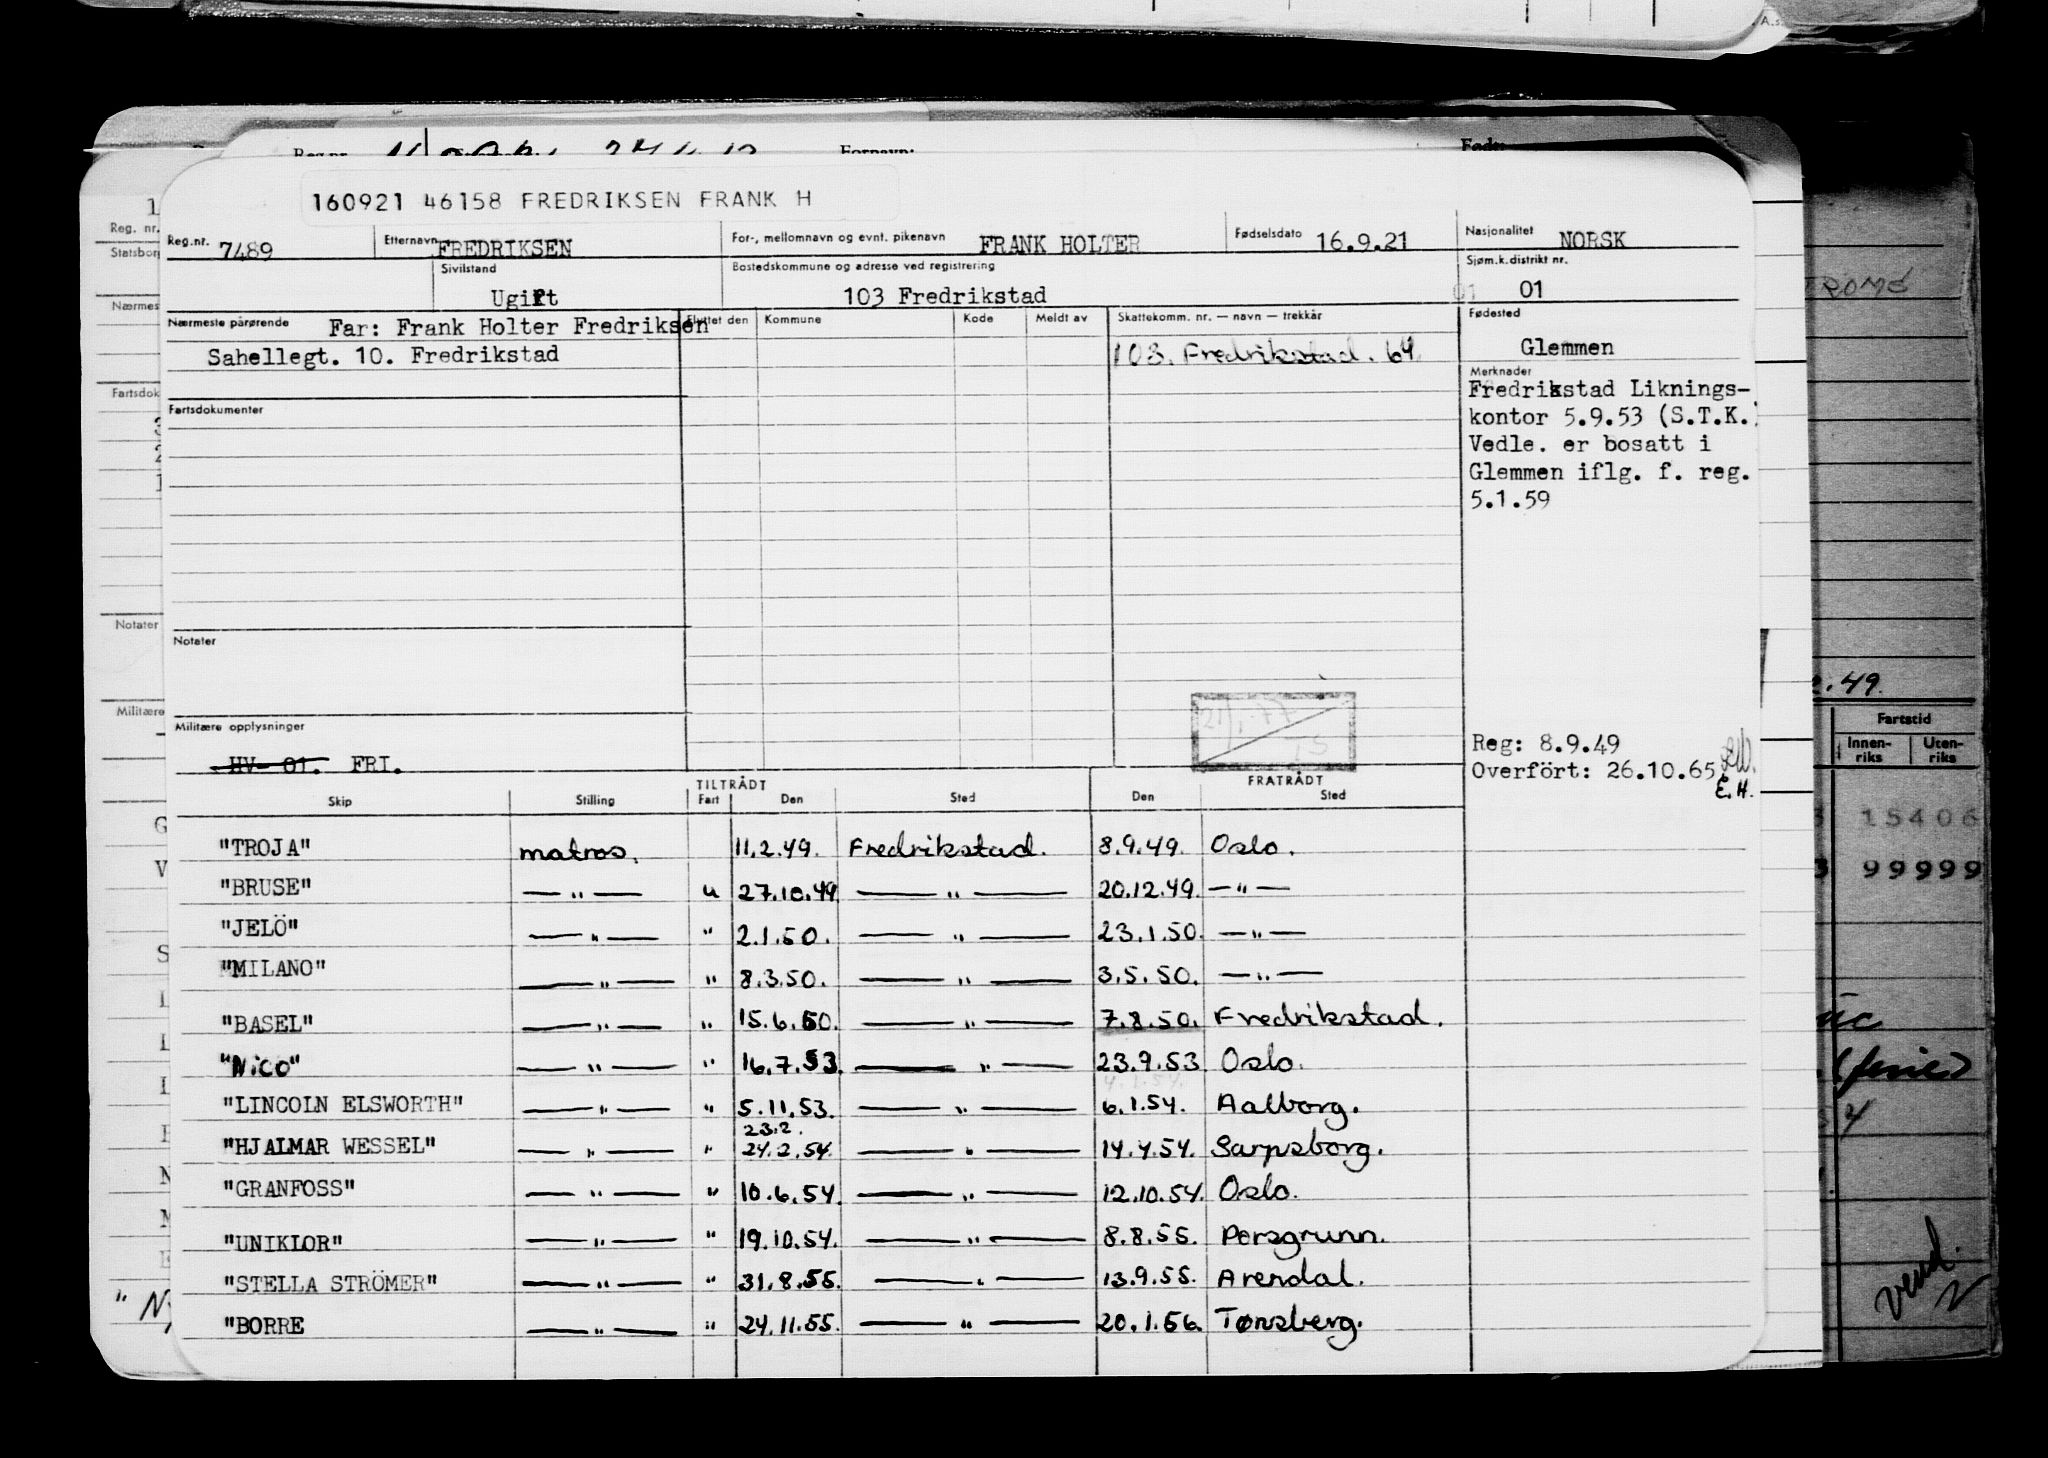 160921 46158 FREDRIKSEN FRANK H
Reg.nr. 7489 Etternavn FREDRIKSEN For-, mellomnavn og evnt. pikenavn FRANK HOLTER Fødselsdato 16.9.21 Nasjonalitet NORSK
Sivilstand Ugift Bostedskommune og adresse ved registrering 103 Fredrikstad Sjøm.k.distrikt nr. 01
Nærmeste pårørende Far: Frank Holter Fredriksen Flyttet den Kommune Kode Meldt av Skattekomm. nr. — navn — trekkår Fødested
Sahellegt. 10. Fredrikstad 103. Fredrikstad. 64 Glemmen
Merknader
Fredrikstad Liknings-
Fartsdokumenter kontor 5.9.53 (S.T.K.)
Vedle. er bosatt i
Glemmen iflg. f. reg.
5.1.59
Notater
Militære opplysninger
HV- 01. FRI.
Reg: 8.9.49
Overfört: 26.10.65
E.H.
TILTRÅDT FRATRÅDT
Skip Stilling Fart Den Sted Den Sted
"TROJA" matros. 11.2.49. Fredrikstad. 8.9.49. Oslo.
"BRUSE" — " — u 27.10.49 — " — 20.12.49. — " —
"JELÖ" — " — " 2.1.50. — " — 23.1.50. — " —
"MILANO" — " — " 8.3.50. — " — 3.5.50. — " —
"BASEL" — " — " 15.6.50. — " — 7.8.50. Fredrikstad.
"Nico" — " — " 16.7.53. — " — 23.9.53 Oslo.
"LINCOLN ELSWORTH" — " — " 5.11.53. — " — 6.1.54. Aalborg.
23.2.
"HJALMAR WESSEL" — " — " 24.2.54. — " — 14.4.54. Sarpsborg.
"GRANFOSS" — " — " 10.6.54. — " — 12.10.54. Oslo.
"UNIKLOR" — " — " 19.10.54. — " — 8.8.55. Porsgrunn.
"STELLA STRÖMER" — " — " 31.8.55. — " — 13.9.55. Arendal.
"BORRE — " — " 24.11.55. — " — 20.1.56. Tønsberg.
Reg. nr.
Notater
Fartstid
Innen-
riks
Uten-
riks
15406
99999
(ferie)
vend.